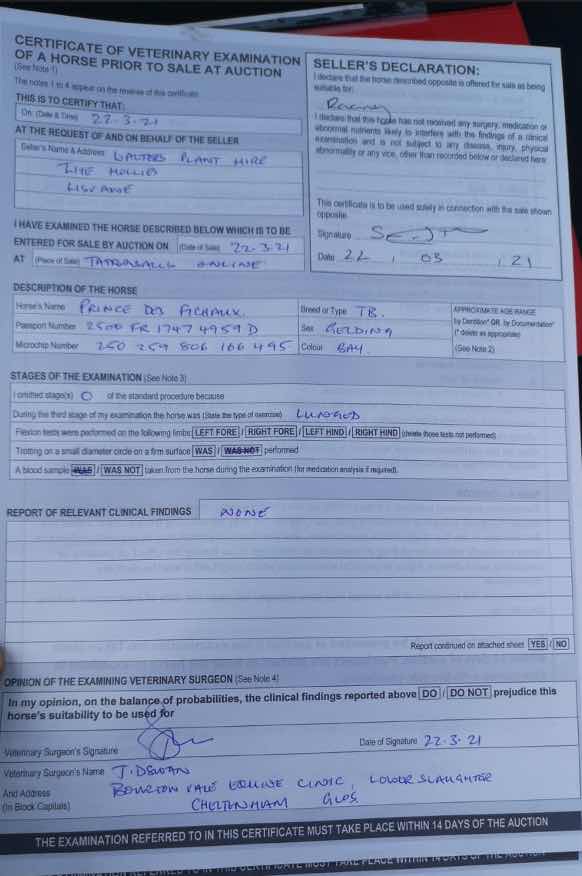 CERTIFICATE OF VETERINARY EXAMINATION
OF A HORSE PRIOR TO SALE AT AUCTION
(See Note 1)
The notes 1 to 4 appear on the reverse of this certificate
THIS IS TO CERTIFY THAT:
On: (Date & Time) 22-3-21
AT THE REQUEST OF AND ON BEHALF OF THE SELLER
Seller's Name & Address: WALTERS PLANT HIRE
THE HOLLIES
LISVANE
I HAVE EXAMINED THE HORSE DESCRIBED BELOW WHICH IS TO BE
ENTERED FOR SALE BY AUCTION ON (Date of Sale) 22-3-21
AT (Place of Sale) TATTERSALLS ONLINE
SELLER'S DECLARATION:
I declare that the horse described opposite is offered for sale as being
suitable for:
Racing
I declare that this horse has not received any surgery, medication or
abnormal nutrients likely to interfere with the findings of a clinical
examination and is not subject to any disease, injury, physical
abnormality or any vice, other than recorded below or declared here:
This certificate is to be used solely in connection with the sale shown
opposite.
Signature
Date 22 , 03 , 21
DESCRIPTION OF THE HORSE
Horse's Name PRINCE DES FICHAUX Breed or Type TB. APPROXIMATE AGE RANGE
by Dentition* OR by Documentation*
(* delete as appropriate)
(See Note 2)
Passport Number 2500 FR 1747 4959 D Sex GELDING
Microchip Number 250 259 806 166 495 Colour BAY.
STAGES OF THE EXAMINATION (See Note 3)
I omitted stage(s) O of the standard procedure because
During the third stage of my examination the horse was (State the type of exercise) LUNGED
Flexion tests were performed on the following limbs: LEFT FORE / RIGHT FORE / LEFT HIND / RIGHT HIND (delete those tests not performed)
Trotting on a small diameter circle on a firm surface WAS / WAS NOT performed
A blood sample WAS / WAS NOT taken from the horse during the examination (for medication analysis if required).
REPORT OF RELEVANT CLINICAL FINDINGS NONE
Report continued on attached sheet YES / NO
OPINION OF THE EXAMINING VETERINARY SURGEON (See Note 4)
In my opinion, on the balance of probabilities, the clinical findings reported above DO / DO NOT prejudice this
horse's suitability to be used for
Veterinary Surgeon's Signature Date of Signature 22-3-21
Veterinary Surgeon's Name
And Address BOURTON VALE EQUINE CLINIC, LOWER SLAUGHTER
(In Block Capitals) CHELTENHAM GLOS.
THE EXAMINATION REFERRED TO IN THIS CERTIFICATE MUST TAKE PLACE WITHIN 14 DAYS OF THE AUCTION